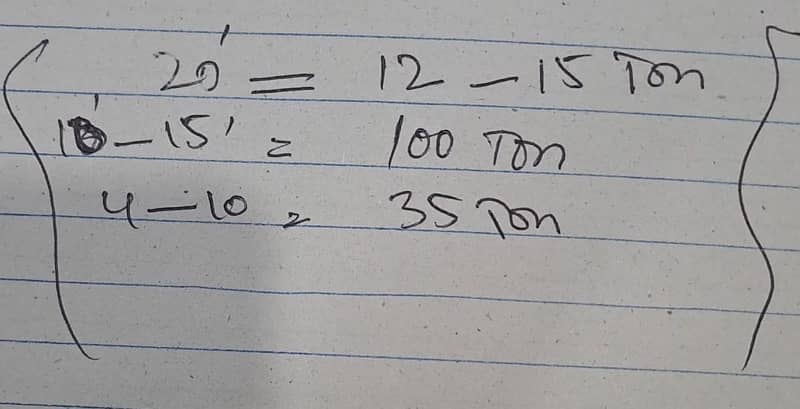 20' = 12 - 15 Ton
10' - 15' = 100 Ton
4 - 10 = 35 Ton